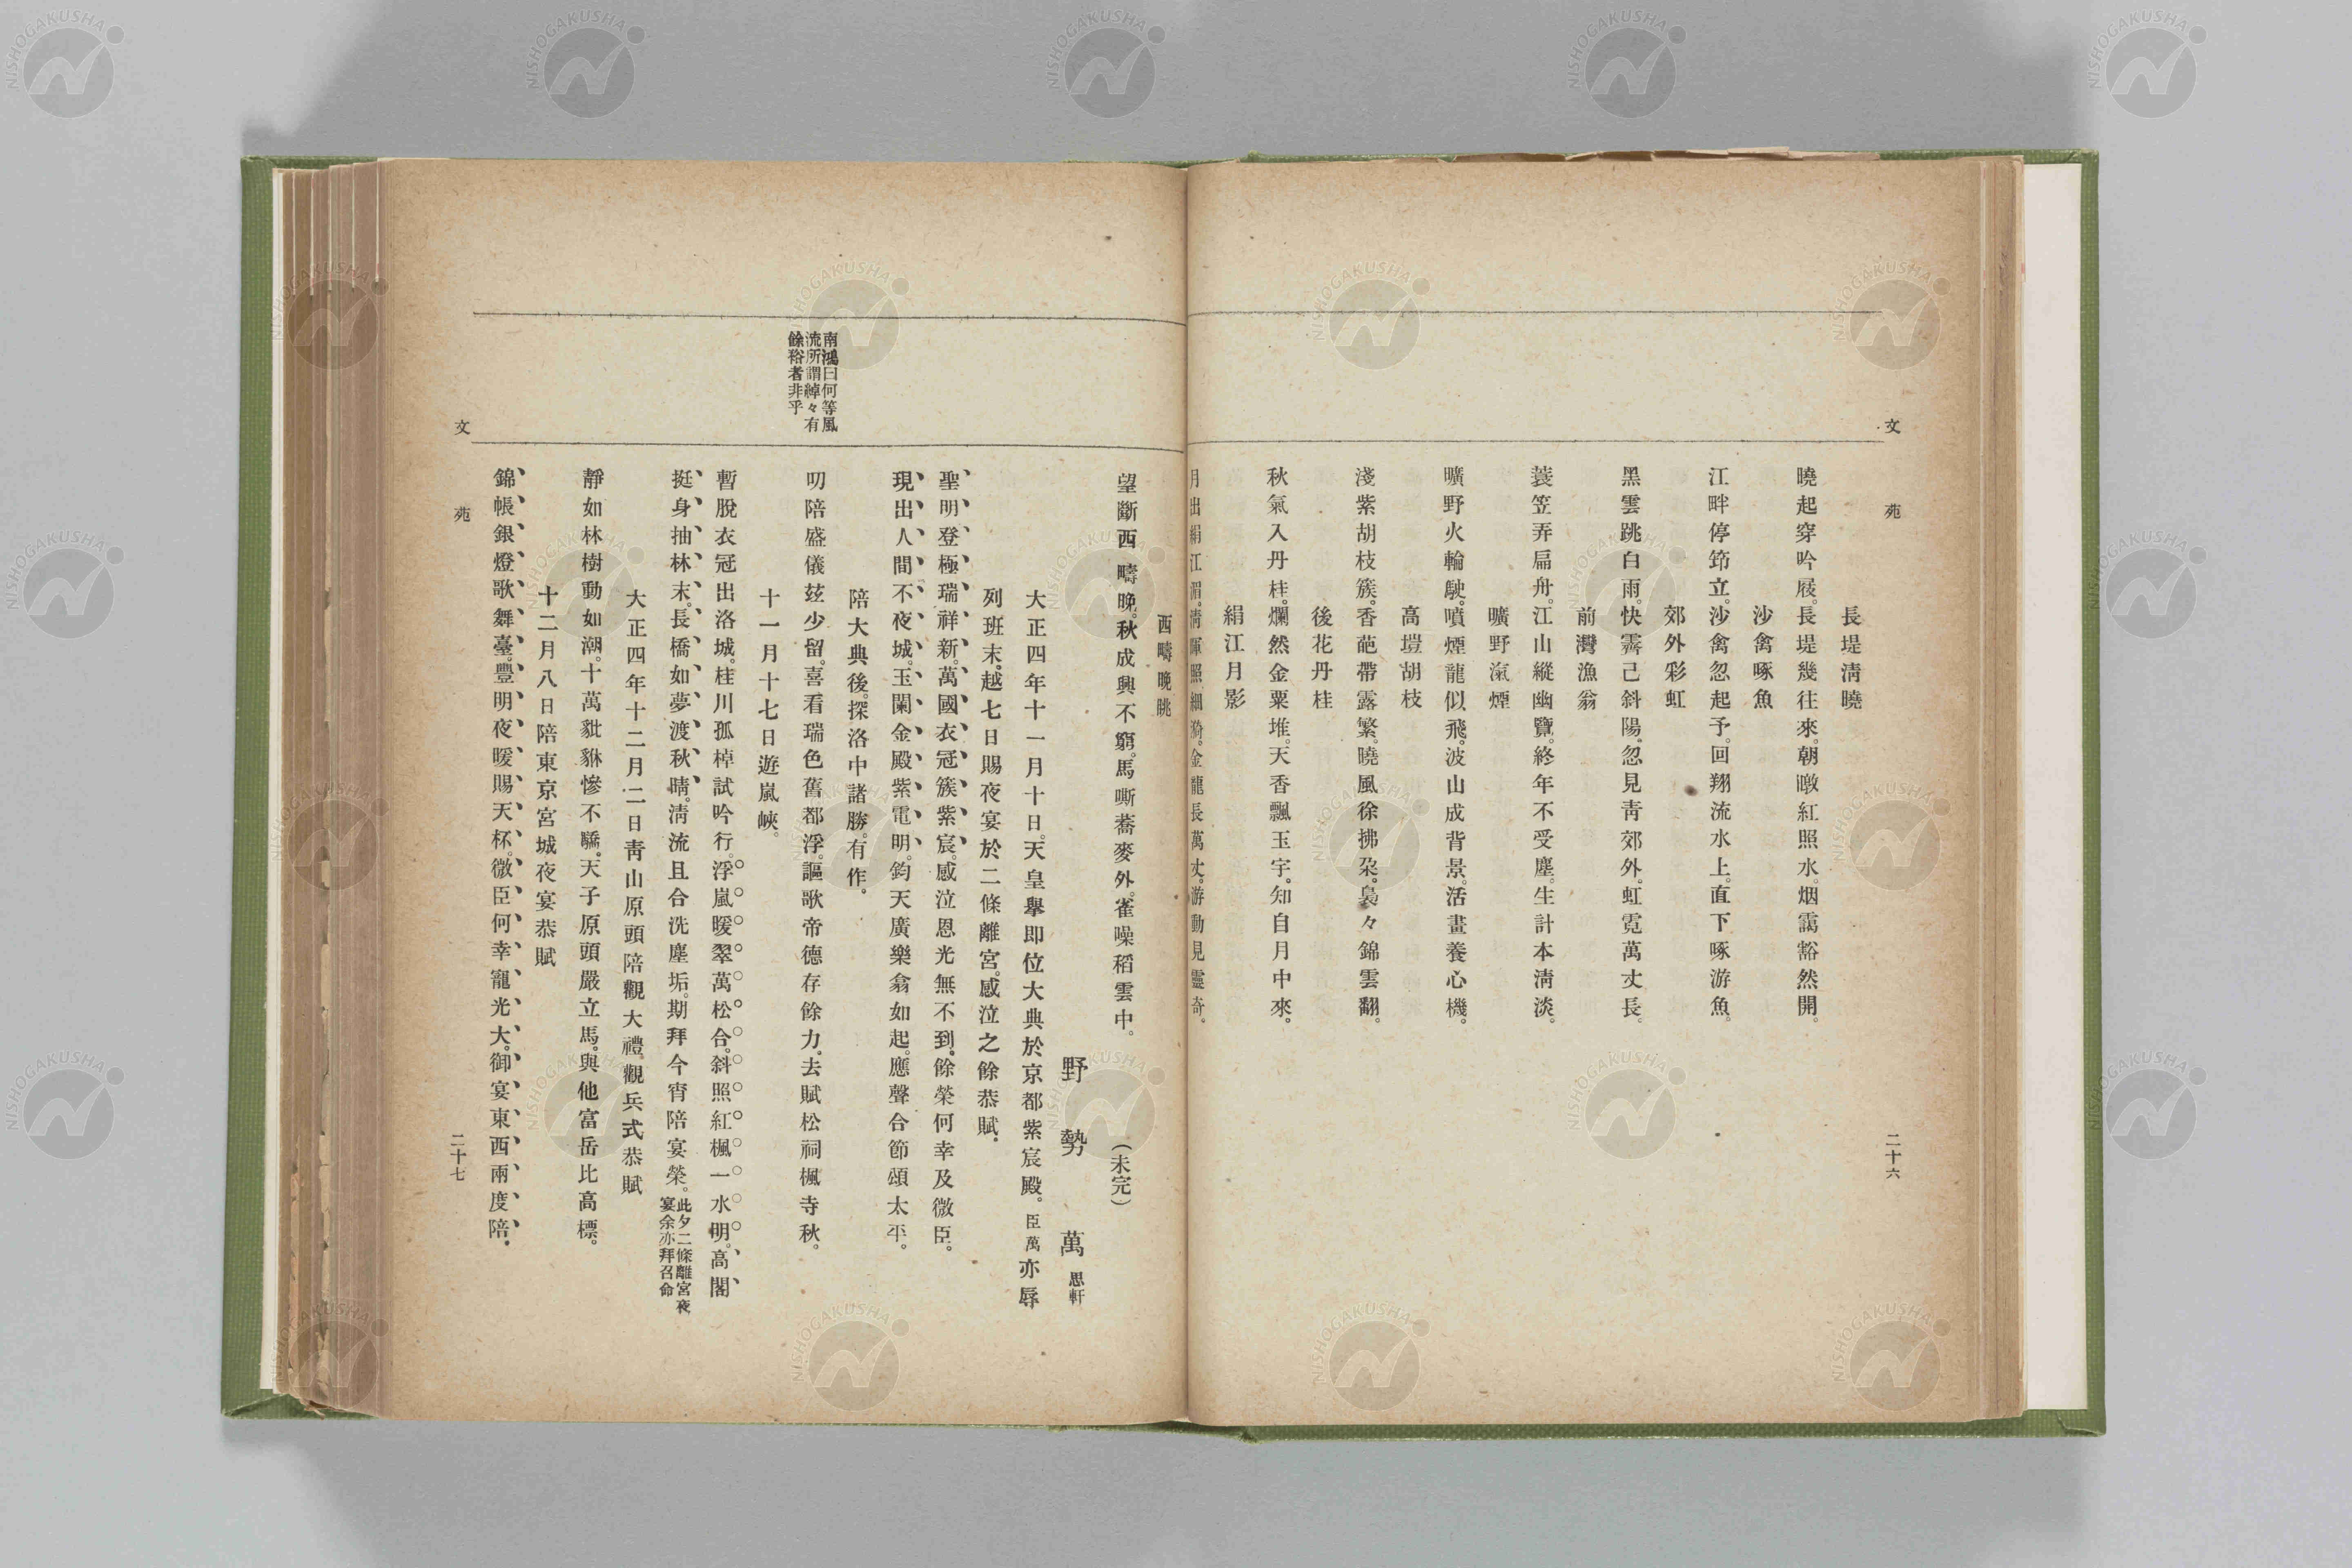 文苑
二十六
長堤淸曉
曉起穿吟屐。長堤幾往來。朝暾紅照水。烟靄豁然開。
沙禽啄魚
江畔停筇立。沙禽忽起予。回翔流水上。直下啄游魚。
郊外彩虹
黑雲跳白雨。快霽已斜陽。忽見靑郊外。虹霓萬丈長。
前灣漁翁
蓑笠弄扁舟。江山縱幽覽。終年不受塵。生計本淸淡。
曠野滊煙
曠野火輪駛。噴煙龍似飛。波山成背景。活畫養心機。
高塏胡枝
淺紫胡枝簇。香葩帶露繁。曉風徐拂朶。裊々錦雲翻。
後花丹桂
秋氣入丹桂。爛然金粟堆。天香飄玉宇。知自月中來。
絹江月影
月出絹江湄。淸暉照細漪。金龍長萬丈。游動見靈奇。
西疇晚眺
望斷西疇晚。秋成興不窮。馬嘶蕎麥外。雀噪稻雲中。
(未完)
野勢萬 思軒
大正四年十一月十日。天皇擧卽位大典於京都紫宸殿。臣萬亦辱
列班末。越七日賜夜宴於二條離宮。感泣之餘恭賦。
聖明登極瑞祥新。萬國衣冠簇紫宸。感泣恩光無不到。餘榮何幸及微臣。
現出人間不夜城。玉闌金殿紫電明。鈞天廣樂翕如起。應聲合節頌太平。
陪大典後。探洛中諸勝。有作。
叨陪盛儀玆少留。喜看瑞色舊都浮。謳歌帝德存餘力。去賦松祠楓寺秋。
南鴻曰何等風
流所謂綽々有
餘裕者非乎
十一月十七日遊嵐峽。
暫脫衣冠出洛城。桂川孤棹試吟行。浮嵐暖翠萬松合。斜照紅楓一水明。高閣
挺身抽林末。長橋如夢渡秋晴。淸流且合洗塵垢。期拜今宵陪宴榮。此夕二條離宮夜
宴余亦拜召命
大正四年十二月二日靑山原頭陪觀大禮觀兵式恭賦
靜如林樹動如潮。十萬豼貅慘不驕。天子原頭嚴立馬。與他富岳比高標。
十二月八日陪東京宮城夜宴恭賦
錦帳銀燈歌舞臺。豐明夜暖賜天杯。微臣何幸寵光大。御宴東西兩度陪。
文苑
二十七
NISHOGAKUSHA